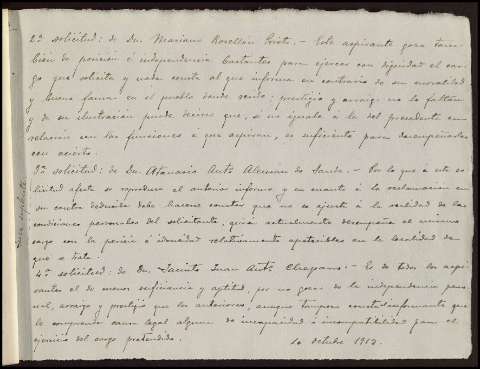 2ª solicitud: de Dn. Mariano Rosellón Prieto. - Este aspirante goza tam-
bien de posición é independencia bastantes para ejercer con dignidad el car-
go que solicita y nada consta al que informa en contrario de su moralidad
y buena fama: en el pueblo donde reside, prestigio y arraigo no le faltan
y de su ilustración puede decirse que, si no iguala á la del precedente en
relación con las funciones á que aspiran, es suficiente para desempeñarlas
con acierto.
3ª solicitud: de Dn. Atanasio Antº Alemán de - Por lo que á este so-
licitud afecta se reproduce el anterior informe y en cuanto á la reclamación en
su contra deducida debe hacerse constar que no se ajusta á la realidad de las
condiciones personales del solicitante, quien actualmente desempeña el mismo
cargo con la pericia é idoneidad relativamente apetecibles en la localidad de
que se trata.
4ª solicitud: de Dn. Jacinto Juan Antº - Es de todos los aspi-
rantes el de menos suficiencia y aptitud, por no gozar de la independencia perso-
nal, arraigo y prestigio que los anteriores, aunque tampoco consta al informante que
le comprenda causa legal alguna de incapacidad ó incompatibilidad para el
ejercicio del cargo pretendido.
10 octubre 1912.
Juez suplente